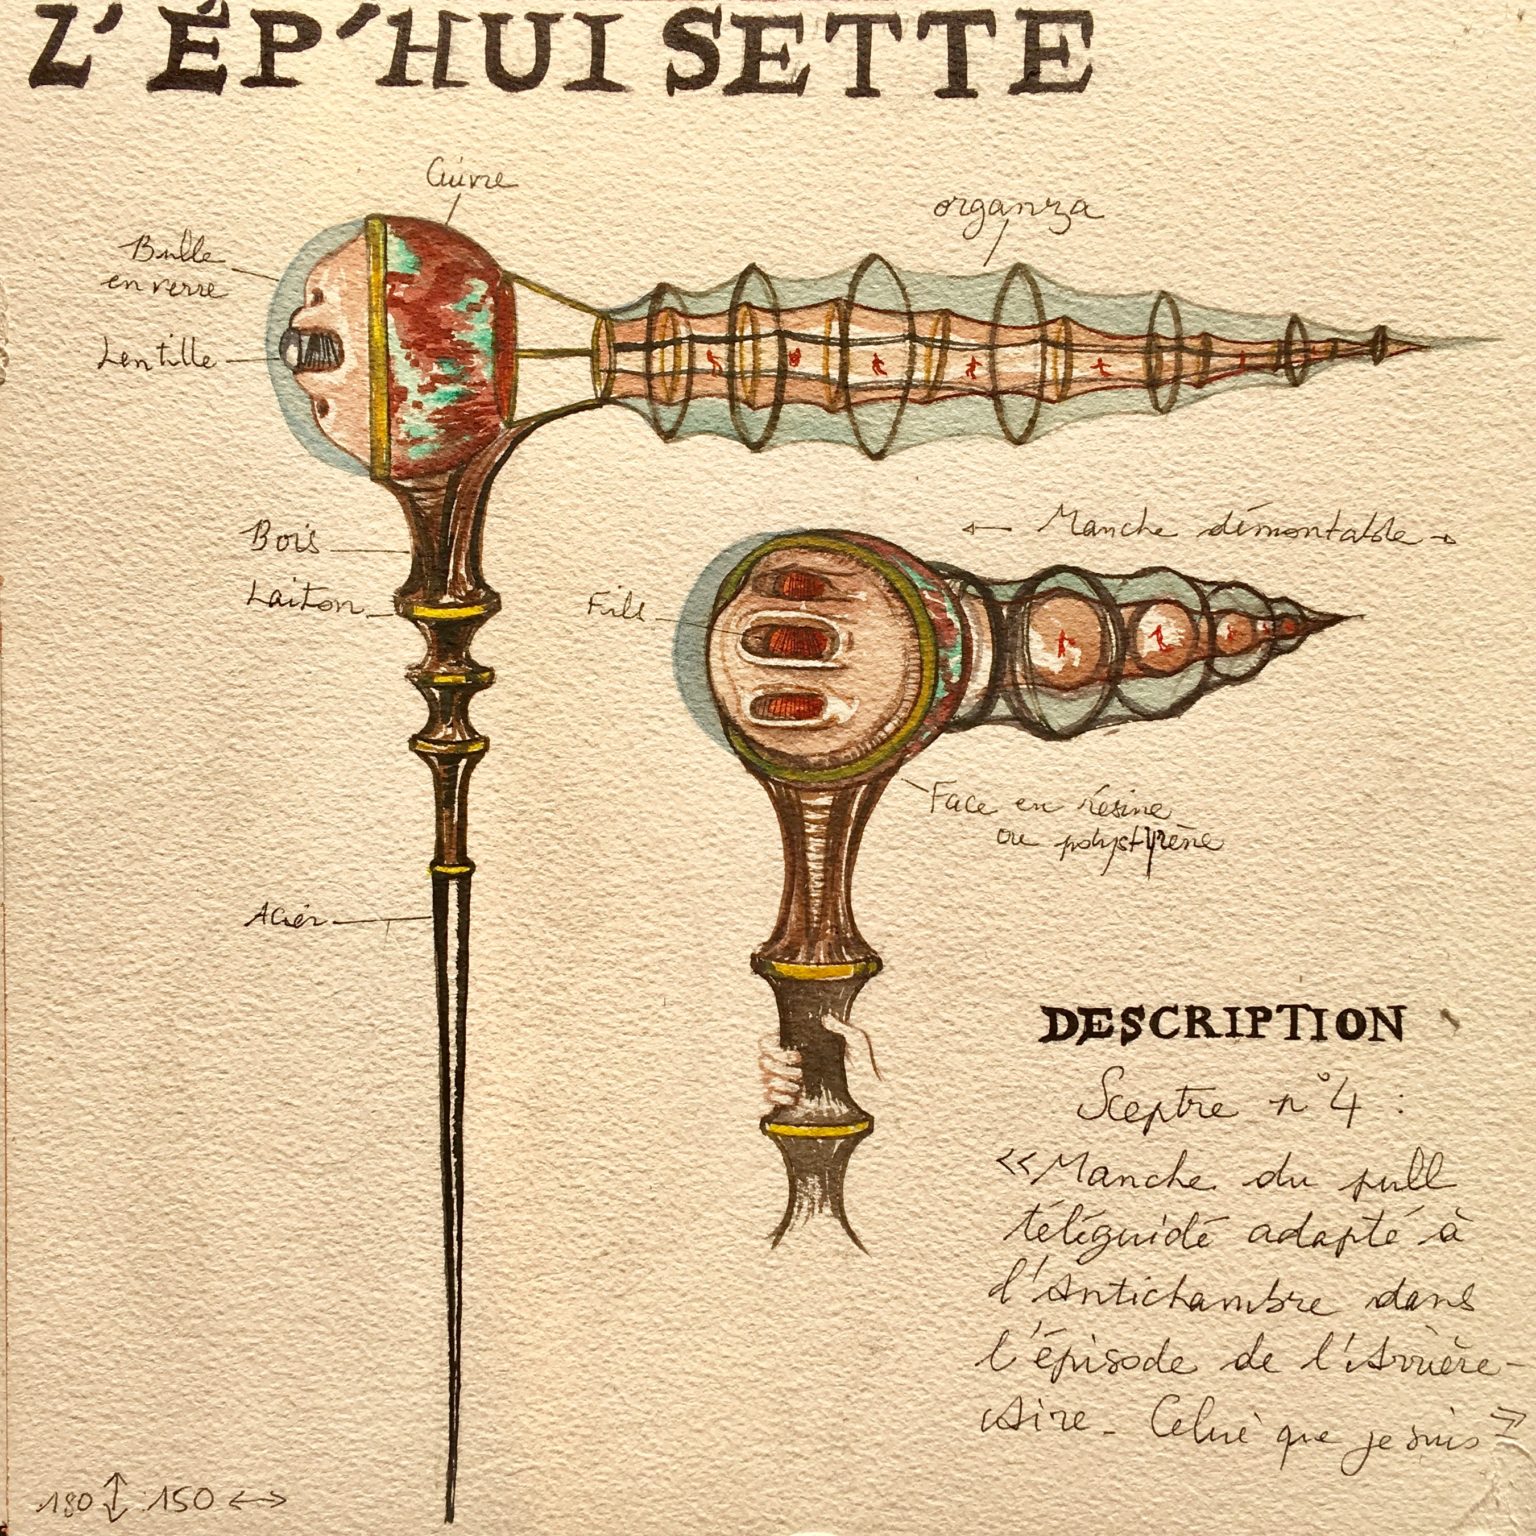 L'ÉP'HUISETTE
Cuivre
organza
Bulle
en verre
Lentille
← Manche démontable →
Bois
Laiton
Fils
Face en résine
ou polystyrène
Acier
DESCRIPTION
Sceptre n°4 :
«Manche du pull
téléguidé adapté à
l'Antichambre dans
l'épisode de l'Arrière-
Aire. Celui que je suis»
180 ↕ 150 ↔